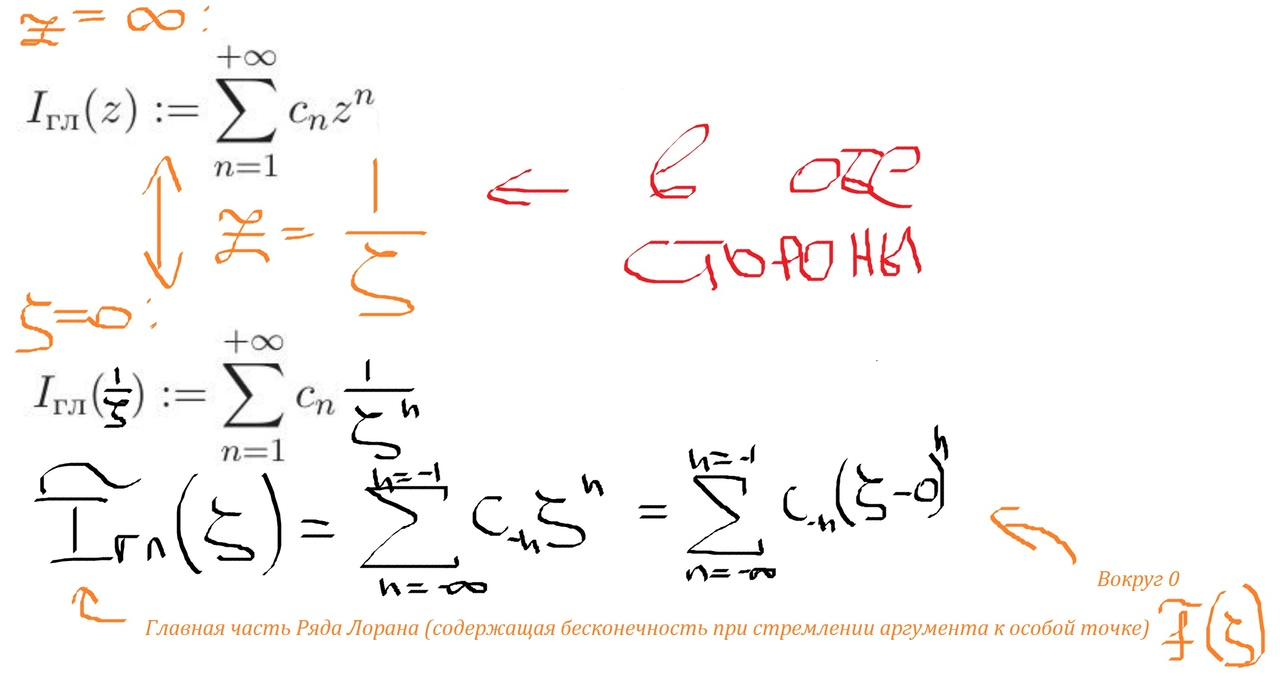 z = ∞ :
I_гл(z) := ∑_{n=1}^{+∞} c_n z^n
z = 1/ζ
← в обе
стороны
ζ = 0 :
I_гл(1/ζ) := ∑_{n=1}^{+∞} c_n 1/ζ^n
Ĩ_гл(ζ) = ∑_{n=-∞}^{n=-1} c_{-n} ζ^n = ∑_{n=-∞}^{n=-1} c_{-n} (ζ-0)^n
Вокруг 0
Главная часть Ряда Лорана (содержащая бесконечность при стремлении аргумента к особой точке) F(ζ)